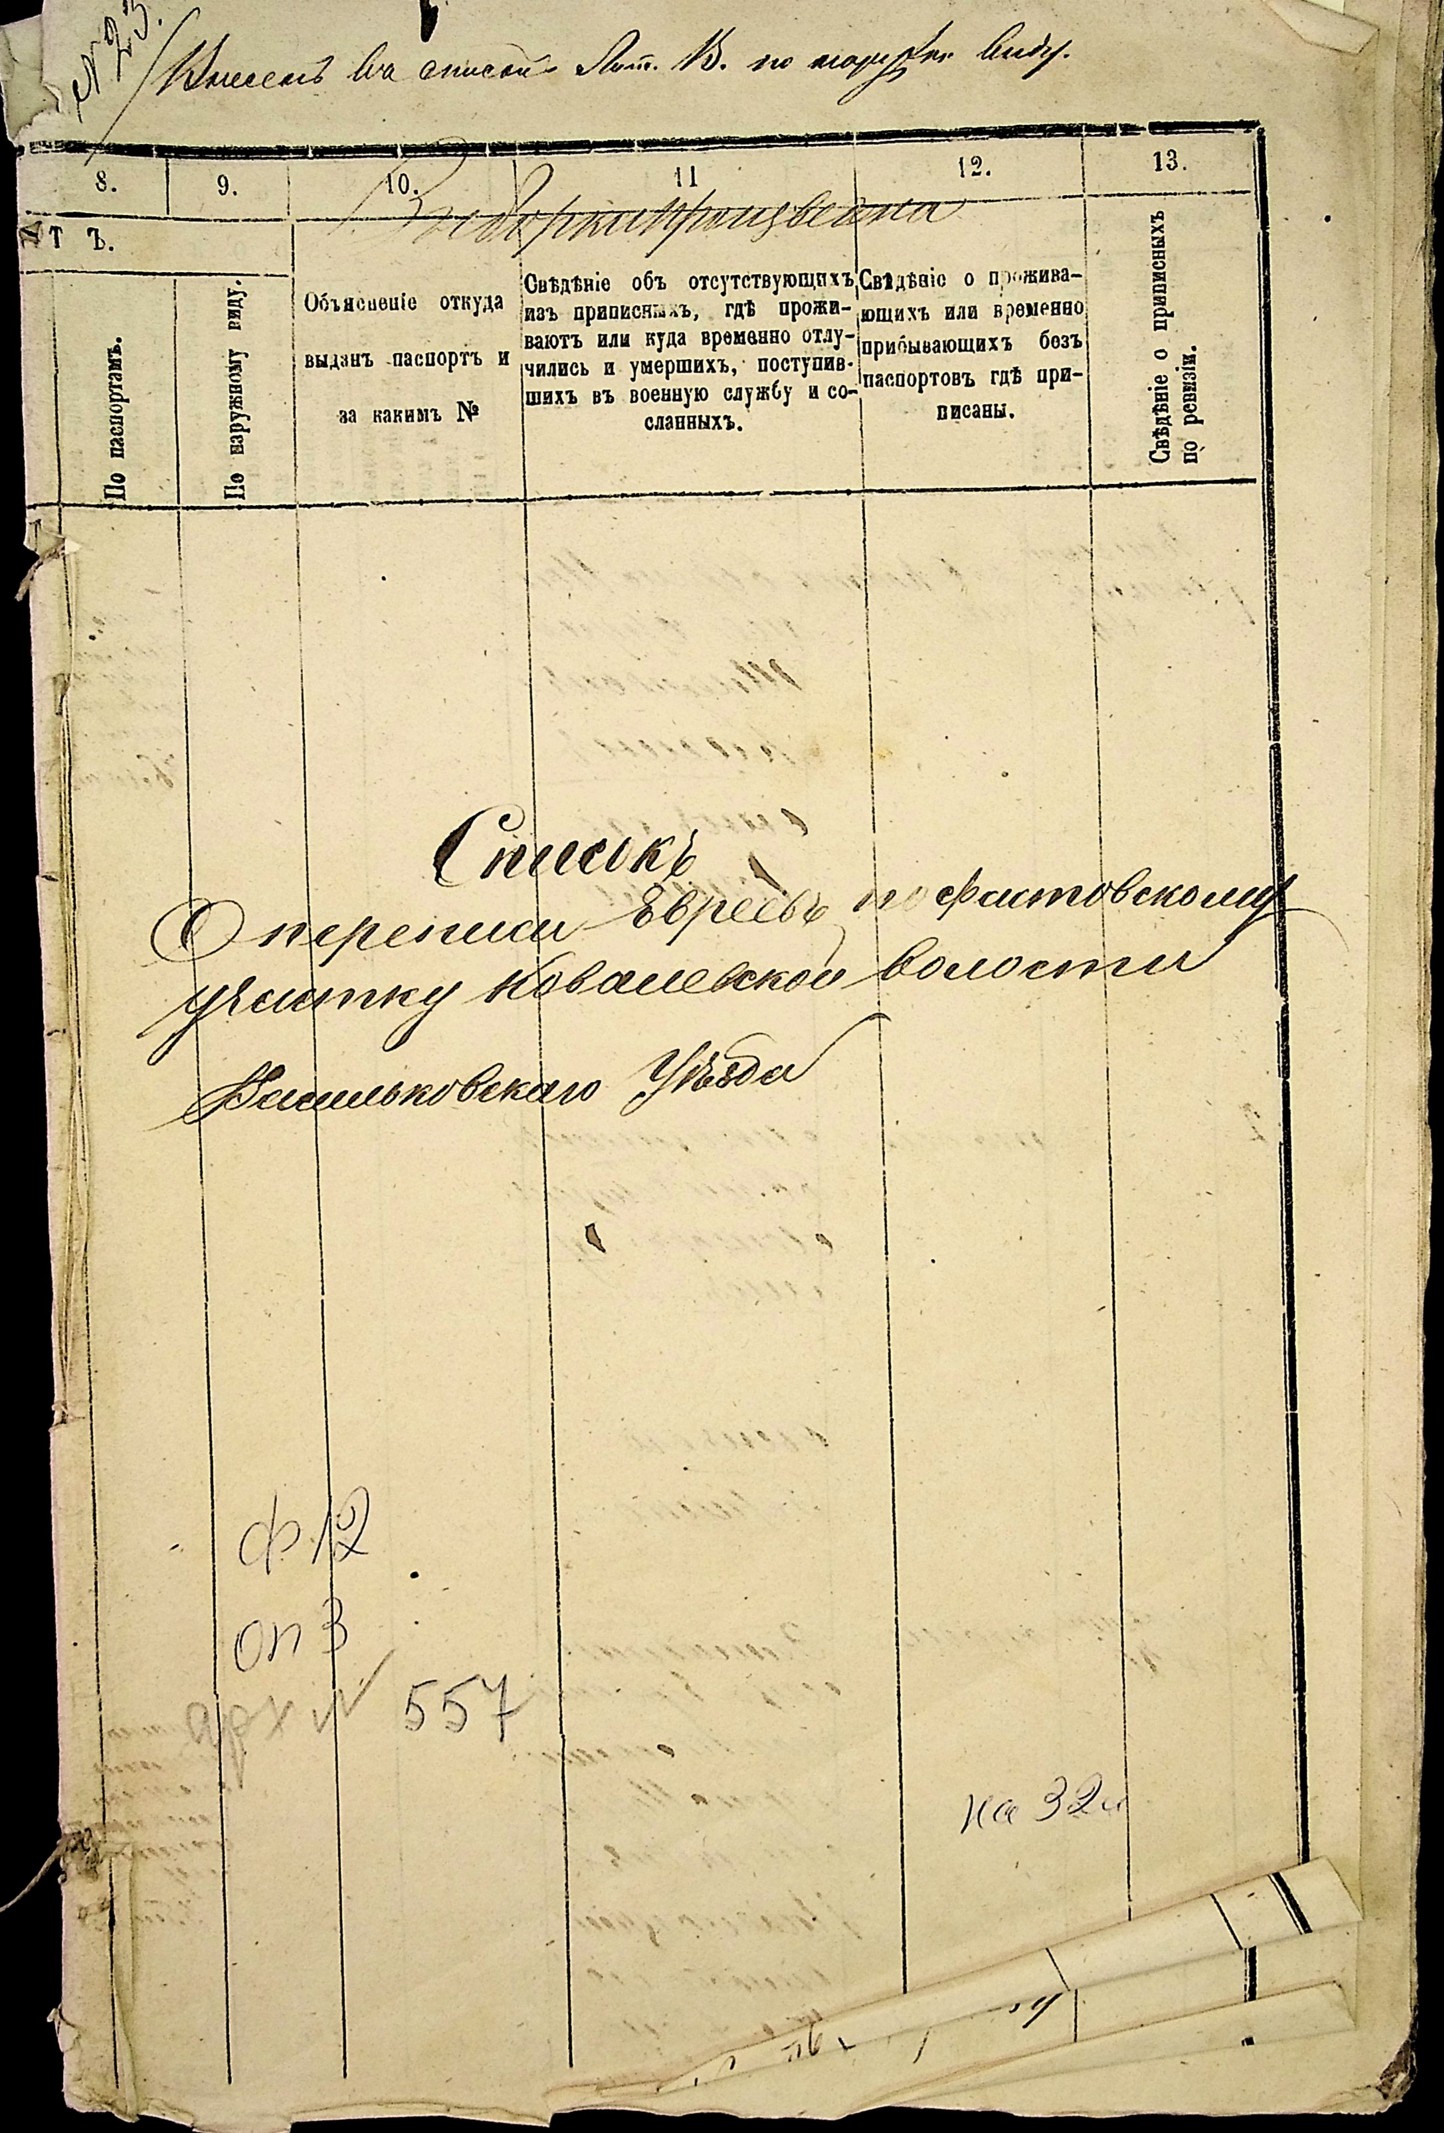 № 23.
Внесенъ въ списокъ Лит. В. по наружн. виду.
8. 9. 10. 11 12. 13.
Т Ъ.
По паспортамъ.
По наружному виду.
Объясненіе откуда
выданъ паспортъ и
за какимъ №
Свѣдѣніе объ отсутствующихъ
изъ приписныхъ, гдѣ прожи-
ваютъ или куда временно отлу-
чились и умершихъ, поступив-
шихъ въ военную службу и со-
сланныхъ.
Свѣдѣніе о прожива-
ющихъ или временно
прибывающихъ безъ
паспортовъ гдѣ при-
писаны.
Свѣдѣніе о приписныхъ
по ревизіи.
Списокъ
О переписи Евреевъ по Фастовскому
участку Ковалевской волости
Васильковскаго Уѣзда
Ф 12
оп 3
арх № 557
на 32 л